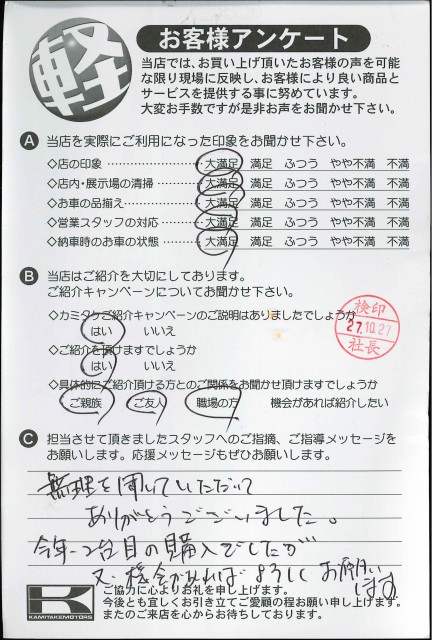 軽
お客様アンケート
当店では、お買い上げ頂いたお客様の声を可能
な限り現場に反映し、お客様により良い商品と
サービスを提供する事に努めています。
大変お手数ですが是非お声をお聞かせ下さい。
A 当店を実際にご利用になった印象をお聞かせ下さい。
◇店の印象 大満足 満足 ふつう やや不満 不満
◇店内・展示場の清掃 大満足 満足 ふつう やや不満 不満
◇お車の品揃え 大満足 満足 ふつう やや不満 不満
◇営業スタッフの対応 大満足 満足 ふつう やや不満 不満
◇納車時のお車の状態 大満足 満足 ふつう やや不満 不満
B 当店はご紹介を大切にしております。
ご紹介キャンペーンについてお聞かせ下さい。
◇カミタケご紹介キャンペーンのご説明はありましたでしょうか
はい いいえ
検印
27.10.27
社長
◇ご紹介を頂けますでしょうか
はい いいえ
◇具体的にご紹介頂ける方とのご関係をお聞かせ頂けますでしょうか
ご親族 ご友人 職場の方 機会があれば紹介したい
C 担当させて頂きましたスタッフへのご指摘、ご指導メッセージを
お願いします。応援メッセージもぜひお願いします。
無理を聞いていただいて
ありがとうございました。
今年2台目の購入でしたが
又、機会があればよろしくお願い
します
K
KAMITAKEMOTORS
ご協力に心よりお礼を申し上げます。
今後とも宜しくお引き立てご愛顧の程お願い申し上げます。
またのご来店を心からお待ちしております。